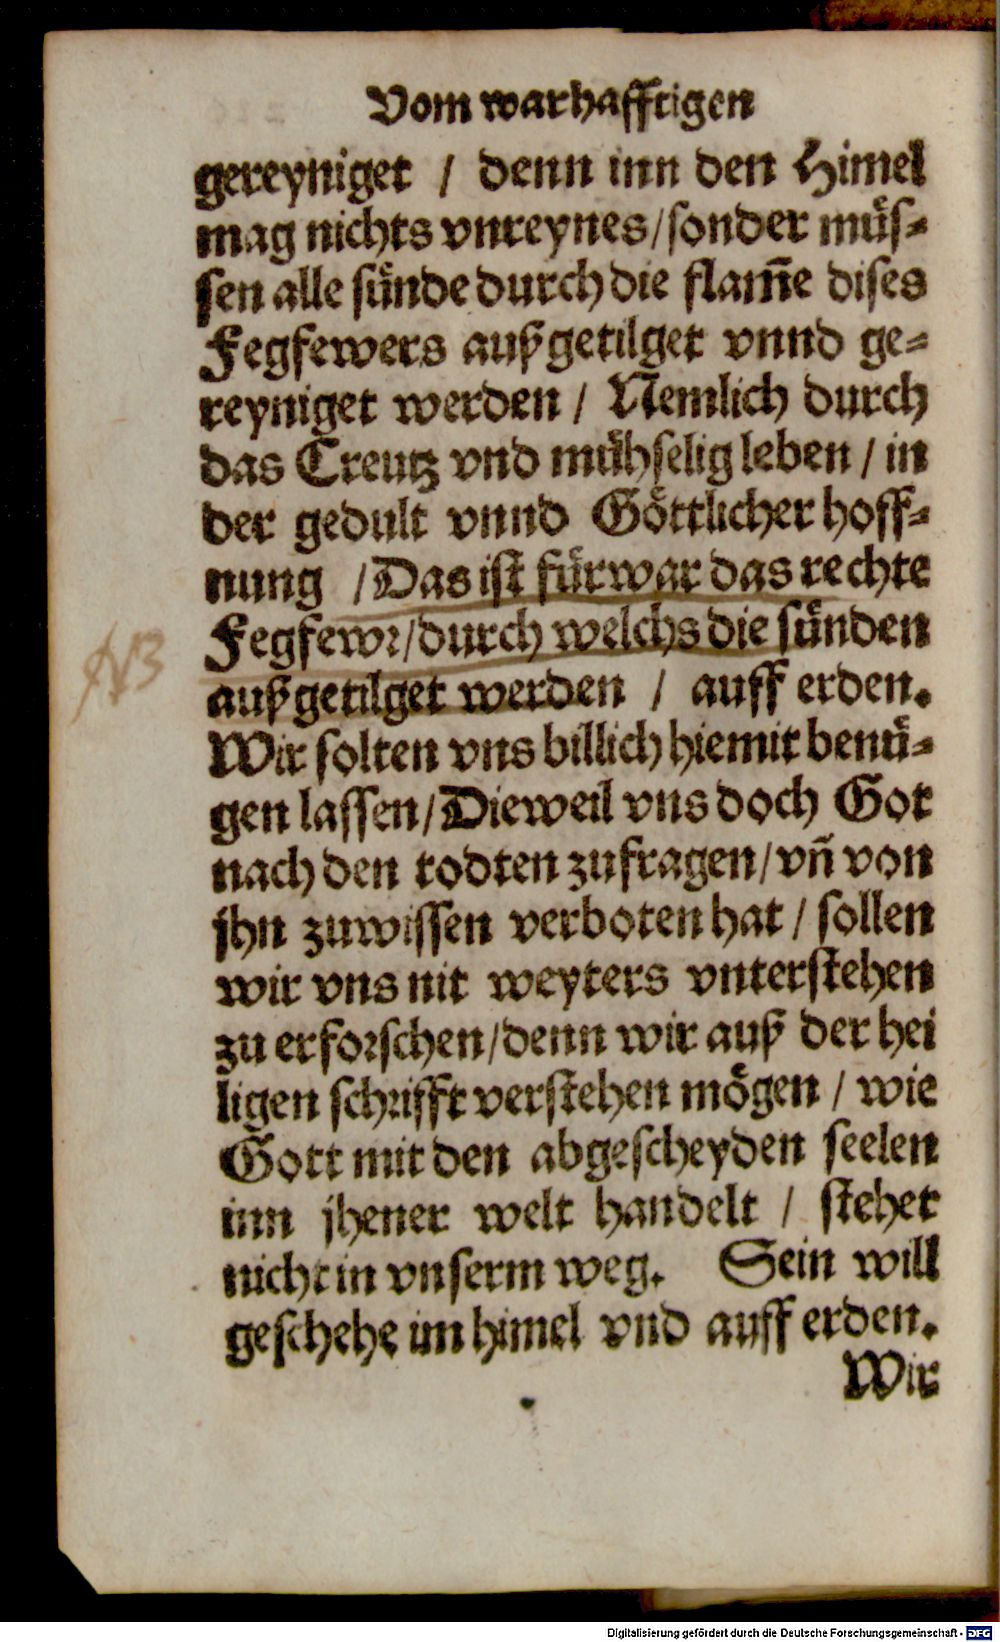 Vom warhafftigen
gereyniget / denn inn den Himel
mag nichts vnreynes / sonder müs-
sen alle sünde durch die flam̄e dises
Fegfewers außgetilget vnnd ge-
reyniget werden / Nemlich durch
das Creutz vnd mühselig leben / in
der gedult vnnd Göttlicher hoff-
nung / Das ist fürwar das rechte
Fegfewr / durch welchs die sünden
NB
außgetilget werden / auff erden.
Wir solten vns billich hiemit benü-
gen lassen / Dieweil vns doch Got
nach den todten zufragen / vn̄ von
jhn zuwissen verboten hat / sollen
wir vns nit weyters vnterstehen
zu erforschen / denn wir auß der hei
ligen schrifft verstehen mögen / wie
Gott mit den abgescheyden seelen
inn jhener welt handelt / stehet
nicht in vnserm weg. Sein will
geschehe im himel vnd auff erden.
Wir
Digitalisierung gefördert durch die Deutsche Forschungsgemeinschaft - DFG